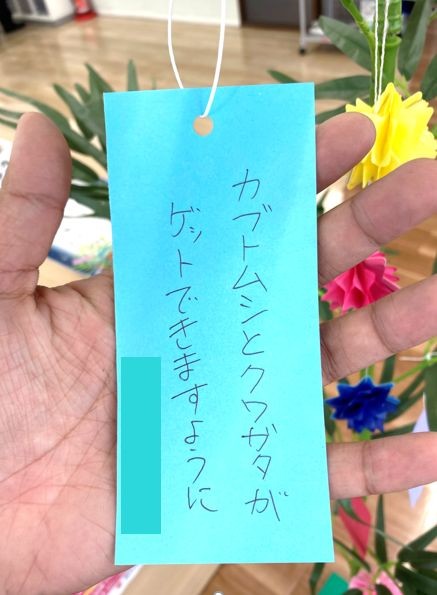 カブトムシとクワガタが
ゲットできますように